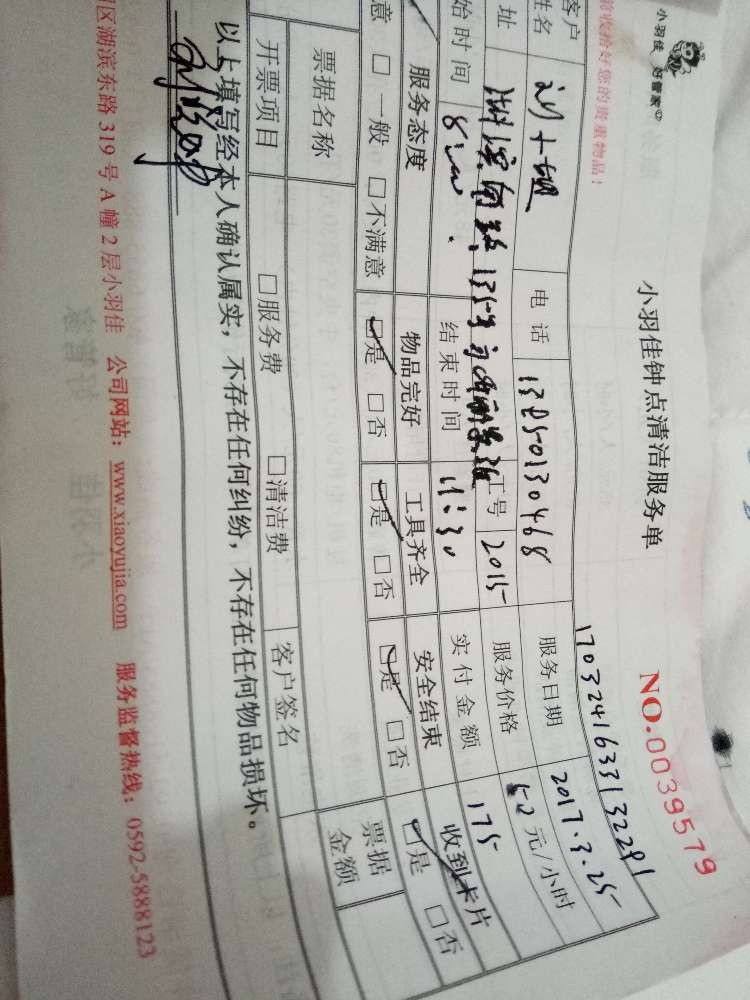 小羽佳 好管家
前收拾好您的贵重物品！
小羽佳钟点清洁服务单
NO.0039579
1703241633132291
客户姓名 电话 服务日期 2017.3.25
址 工号 2015 服务价格 50元/小时
始时间 结束时间 11:30 实付金额 175
服务态度 物品完好 工具齐全 安全结束 收到卡片
意 □一般 □不满意 □是 □否 □是 □否 □是 □否 □是 □否
票据名称 票据金额
开票项目 □服务费 □清洁费 客户签名
以上填写经本人确认属实，不存在任何纠纷，不存在任何物品损坏。
区湖滨东路319号A幢2层小羽佳 公司网站：www.xiaoyujia.com 服务监督热线：0592-5888123